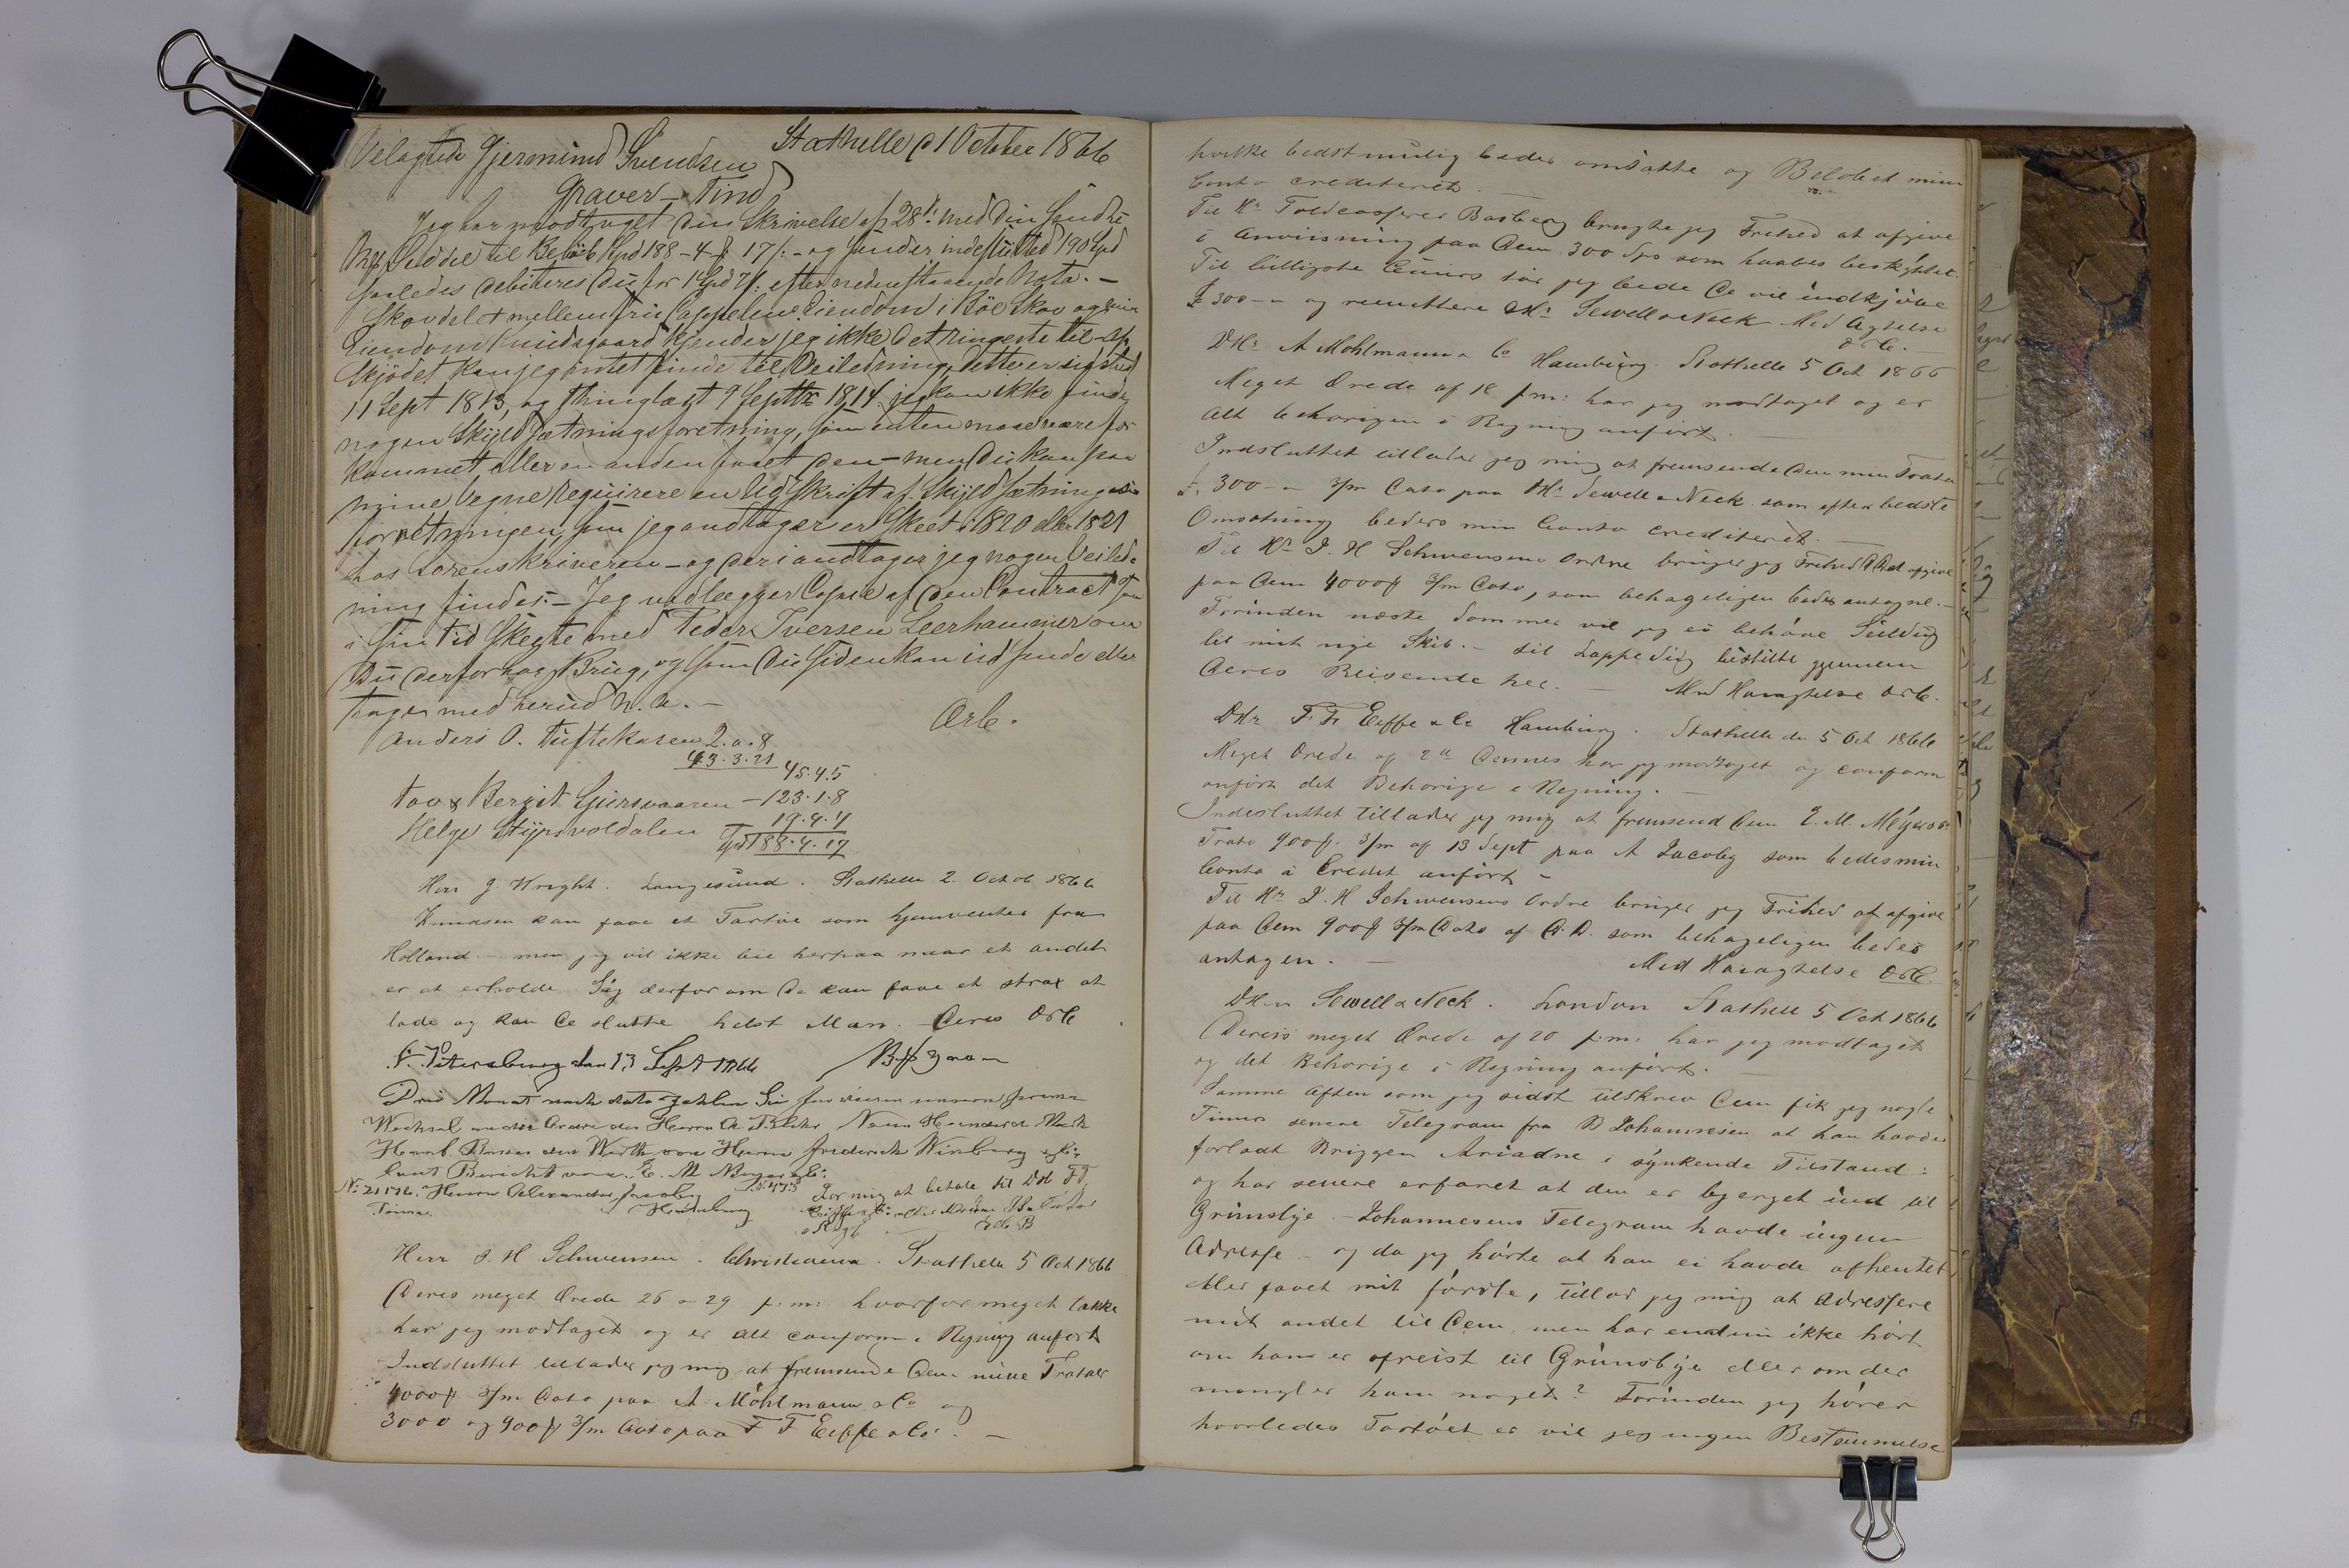 Stathelle d 1 October 1866
Velagtede Gjermund Svendsen
Graver – Tind
Jeg har modtaget Din Skrivelse af 28d: med Din sendte
Seddel til Beløb Spd 188 – 4 17 s: – og sender indesluttet 190 Spd
saaledes debiteres Du for 1 Spd 7 s: efter nedenstaaende Nota. –
Skovdelet mellem Frue Cappelens Eiendom i Böe Skov og min
Eiendom kjender jeg ikke det ringeste til – af
Skjödet kan jeg intet finde til Veiledning, dette er
11 Sept 1813, og thinglæst 9 Septbr 1814. jeg kan ikke finde
nogen Skyldsætningsforetning, som enten maae være for
kommet eller en anden faaet den – men Du kan paa
mine Vegne requirere en Udskrift af Skyldsætnings
forretningen, som jeg andtager er skeet i 1820 eller 1821
hos Sorenskriveren – og deri andtager jeg nogen Veiled
ning findes. – Jeg vedlægger Copie af den Contract som
i sin Tid skeete med Peder Iversen Leerhammer om
Du derfor har Brug, og som Du siden kan udsende eller
tage med herud n. a. –
Örb.
Anders O. Tuftekasen 2. „ . 8
43 . 3 . 21 45.4.5
Bergit – 123.1.8
Helge 19.4.4
Spd 188.4.17
Herr J. Wright. Langesund. Stathelle 2. Octob 1866
Knudsen kan faae et Fartöi som hjemventes fra
Holland – men jeg vil ikke bie herpaa naar et andet
er at erholde. Sög derfor om De kan faae et strax at
lade og kan De slutte helst Man. – Deres Örb
St. Petersburg den 13 Sept 1866 B# 900 –
Drei Monat nach dato zahlen Sie für diesen unsern prima
Wechsel an die Ordre des Herrn Neun Hundert Mark
Hamb. Banco den Werth von Herrn Frederick Winberg & Co
laut Bericht von E. M. Meyer & Co:
No: 21 Herrn Alexander Jacoby For mig at betale til DHr FF.
Prima. Hamburg Eiffe & Co:
Herr J. H Schwensen. Christiania. Stathelle 5 Oct 1866
Deres meget Ærede 26 & 29 p: m: hvorfor meget takke
har jeg modtaget og er alt conform i Regning anfört
Indsluttet tillader jeg mig at fremsende Dem mine Tratter
4000 # 3/m Dato paa A Möhlmann & Co og
3000 og 900 # 3/m Dato paa F F Eiffe & Co. –
hvilke bedst mulig bedes omsatte og Belöbet min
Conto crediteret. –
Til Hr Toldcasserer Basberg brugte jeg Frihed at afgive
i Anviisning paa Dem 300 Spd som haabes beskyttet.
Til billigste Cours tör jeg bede De vil indkjöbe
£ 300 – „ og remittere DHr. Sewell & Neck. Med Agtelse
Örb. –
DHr. A Möhlmann & Co Hamburg. Stathelle 5 Oct 1866
Meget Ærede af 18 p m: har jeg modtaget og er
alt behörigen i Regning anfört. –
Indsluttet tillader jeg mig at fremsende Dem min Tratta
£. 300 – „ 3/m Dato paa DHr. Sewell & Neck som efter bedste
Omsætning bedes min Conto crediteret. –
Til Hr J. H Schwensens Ordre bruger jeg Frihed at afgive
paa Dem 4000 # 3/m Dato, som behageligen bedes antagne. –
Forinden næste Sommer vil jeg ei behöve Seildug
til mit nye Skib. – bestilte gjennem
Deres Reisende her. – Med Höiagtelse Örb.
DHr F. F. Eiffe & Co Hamburg. Stathelle den 5 Oct 1866
Meget Ærede af 2de Dennes har jeg modtaget og conform
anfört det Behörige i Regning. –
Indesluttet tillader jeg mig at fremsend Dem E. M. Meyer & Co
Tratte 900 #. 3/m af 13 Sept paa A Jacoby som bedes min
Conto i Credit anfört –
Til Hr J. H Schwensens Ordre bruger jeg Frihed at afgive
paa Dem 900 # 3/m Dato af D. D. som behageligen bedes
antagen. – Med Höiagtelse Örb.
DHrr Sewell & Neck. London Stathell 5 Oct 1866
Deres meget Ærede af 20 p: m: har jeg modtaget
og det Behörige i Regning anfört. –
Samme Aften som jeg sidst tilskrev Dem fik jeg nogle
Timer senere Telegram fra B Johannesen at han havde
forladt Briggen Ariadne i synkende Tilstand:
og har senere erfaret at den er bjerget ind til
Grimsbye. – Johannesens Telegram havde ingen
Adresse – og da jeg hörte at han ei havde afhentet
eller faaet mit förste, tillod jeg mig at adressere
mit andet til Dem, men har endnu ikke hört
om han er afreist til Grimsbye eller om der
mangler ham noget? Forinden jeg hörer
hvorledes Fartöiet er vil jeg ingen Bestemmelse